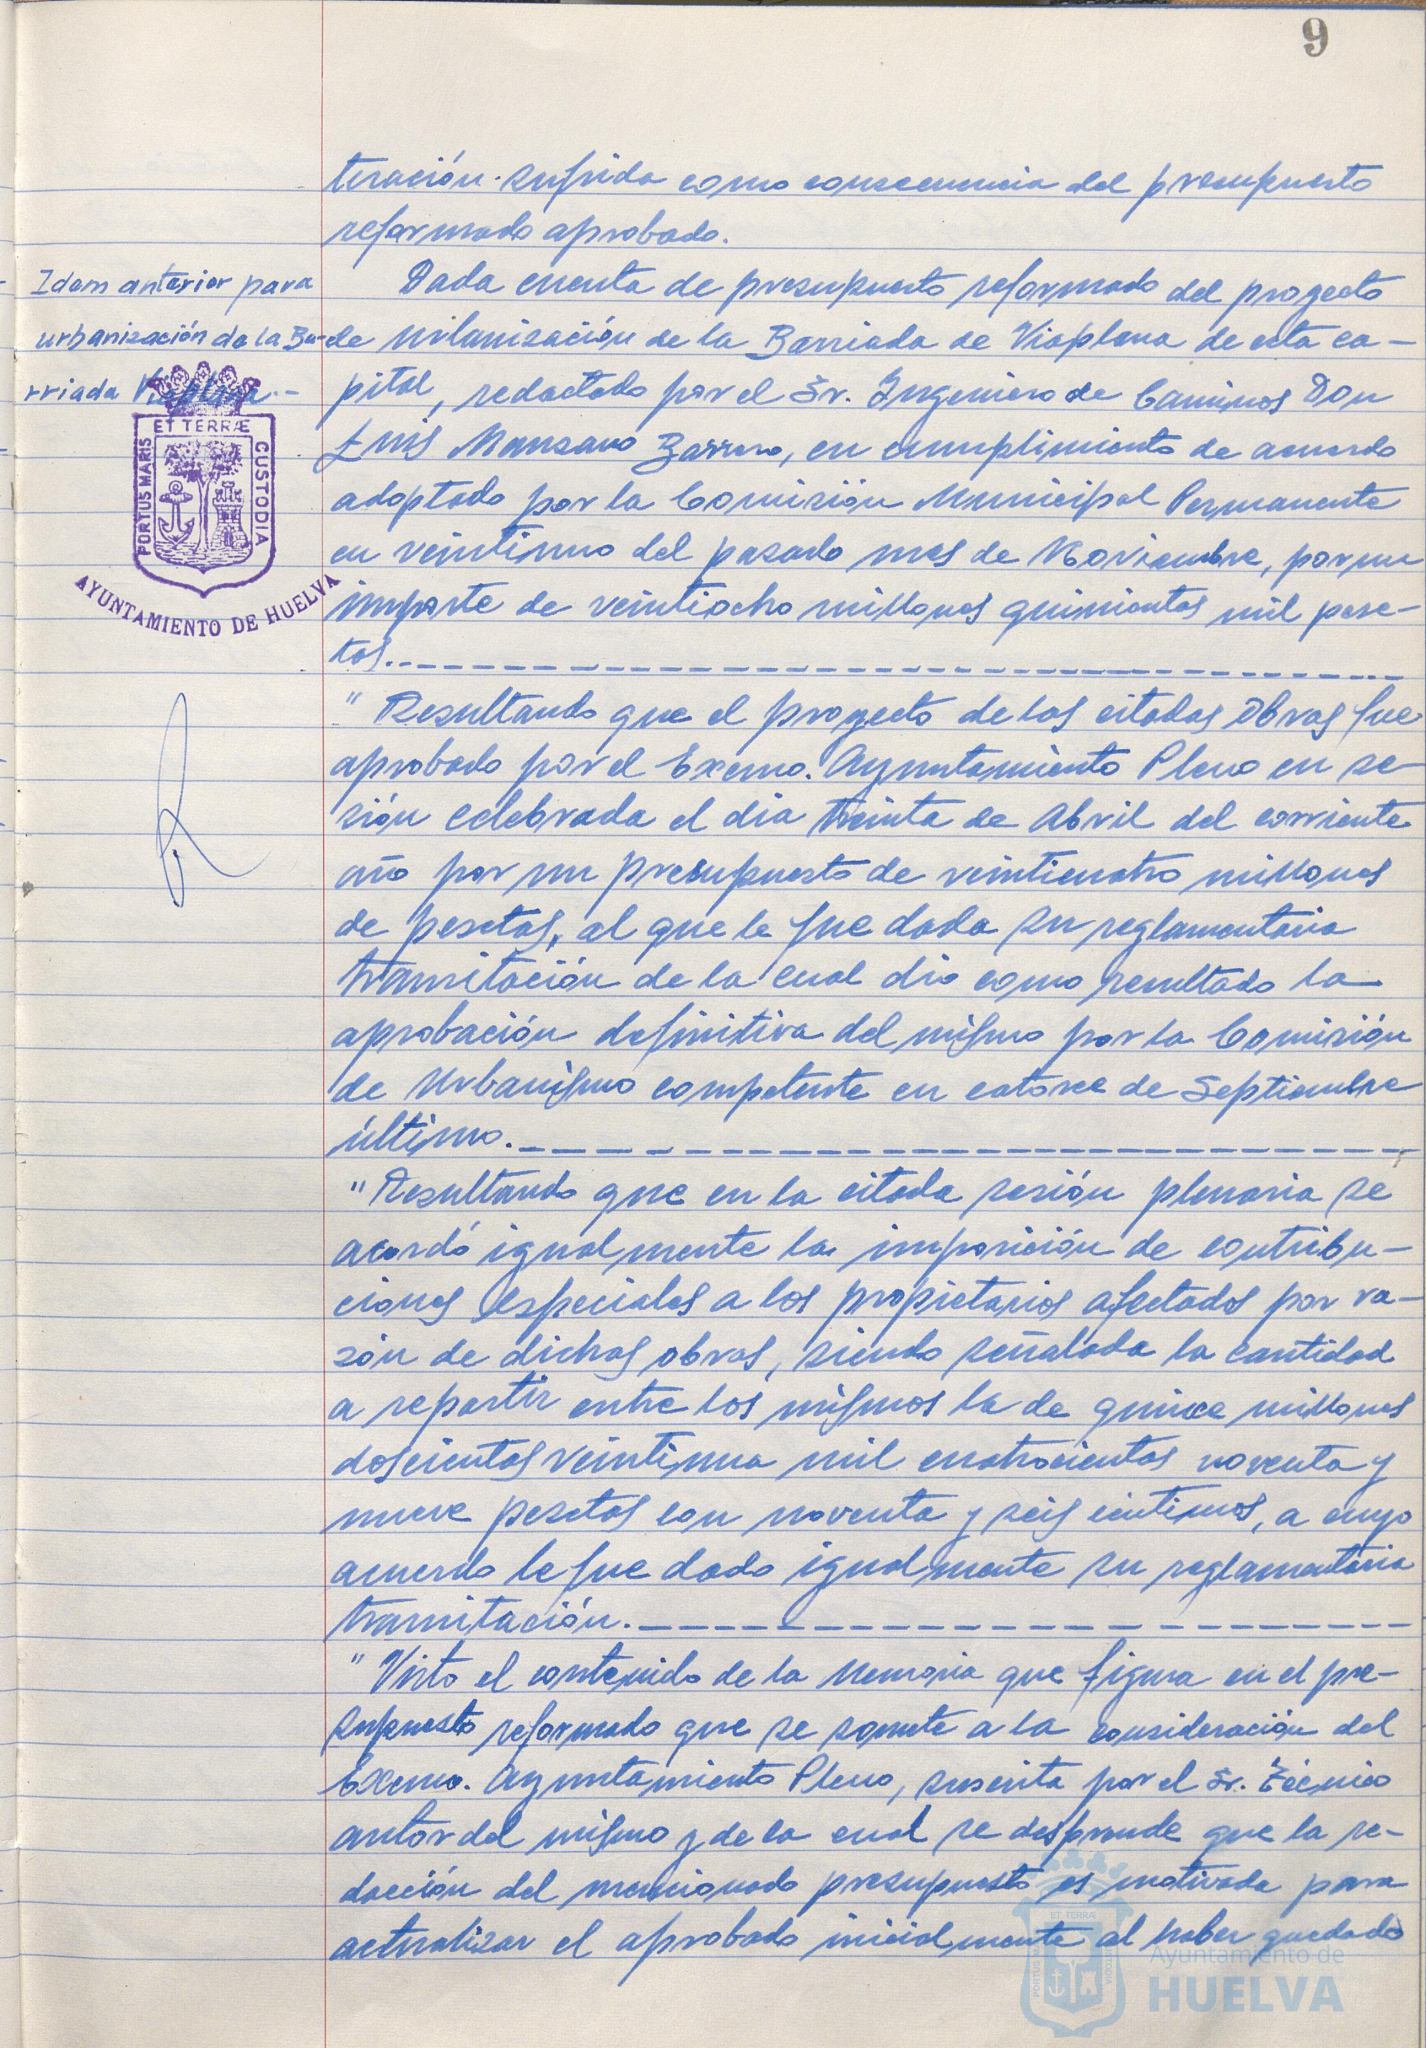 9
teración sufrida como consecuencia del presupuesto
reformado aprobado.
Idem anterior para
urbanización de la Ba-
rriada Viaplana.-
Dada cuenta de presupuesto reformado del proyecto
de urbanización de la Barriada de Viaplana de esta ca-
pital, redactado por el Sr. Ingeniero de Caminos Don
Luis Manzano Barrero, en cumplimiento de acuerdo
adoptado por la Comisión Municipal Permanente
en veintiuno del pasado mes de Noviembre, por un
importe de veintiocho millones quinientas mil pese-
tas.
ET TERRÆ
PORTUS MARIS
CUSTODIA
AYUNTAMIENTO DE HUELVA
"Resultando que el proyecto de las citadas obras fue
aprobado por el Excmo. Ayuntamiento Pleno en se-
sión celebrada el dia treinta de Abril del corriente
año por un presupuesto de veinticuatro millones
de pesetas, al que le fue dada su reglamentaria
tramitación de la cual dio como resultado la
aprobación definitiva del mismo por la Comisión
de Urbanismo competente en catorce de Septiembre
último.
"Resultando que en la citada sesión plenaria se
acordó igualmente la imposición de contribu-
ciones especiales a los propietarios afectados por ra-
zón de dichas obras, siendo señalada la cantidad
a repartir entre los mismos la de quince millones
doscientas veintiuna mil cuatrocientas noventa y
nueve pesetas con noventa y seis céntimos, a cuyo
acuerdo le fue dado igualmente su reglamentaria
tramitación.
"Visto el contenido de la Memoria que figura en el pre-
supuesto reformado que se somete a la consideración del
Excmo. Ayuntamiento Pleno, suscrita por el Sr. Técnico
autor del mismo y de la cual se desprende que la re-
dacción del mencionado presupuesto es motivada para
actualizar el aprobado inicialmente al haber quedado
ET TERRÆ
PORTUS MARIS
CUSTODIA
Ayuntamiento de
HUELVA